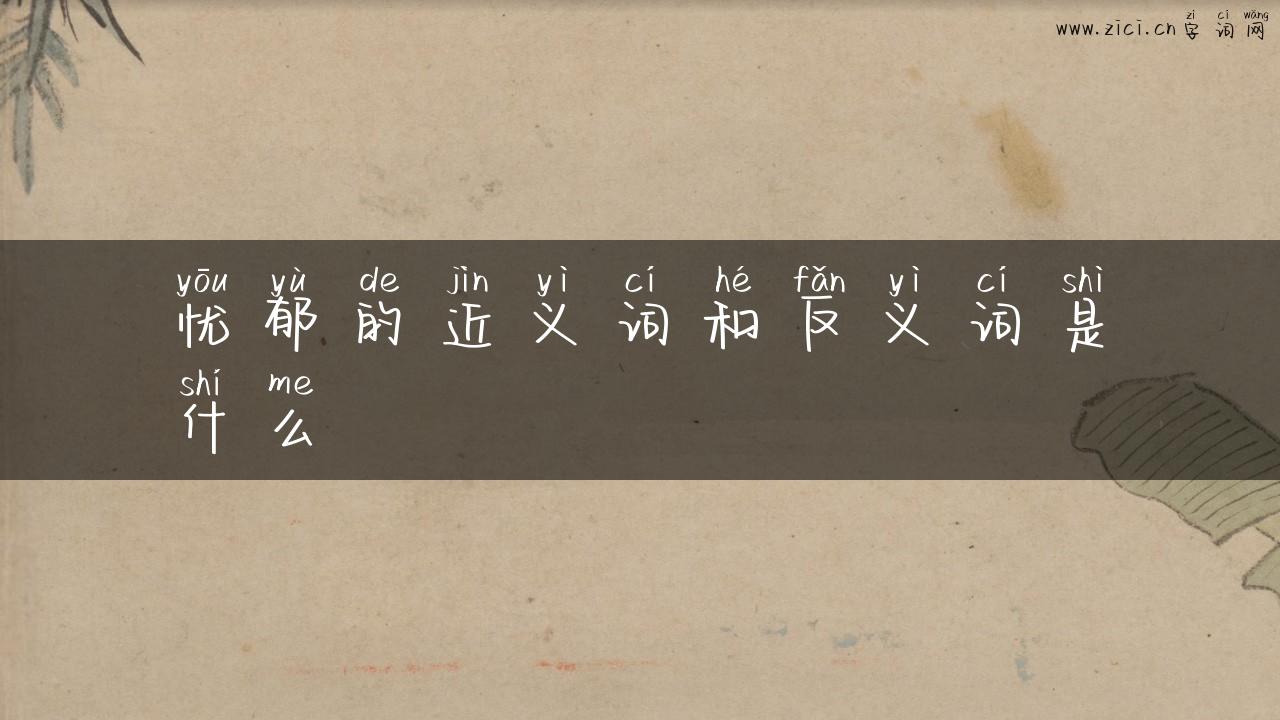 zì cí wǎng
www.zici.cn 字 词 网
yōu yù de jìn yì cí hé fǎn yì cí shì
忧 郁 的 近 义 词 和 反 义 词 是
shí me
什 么